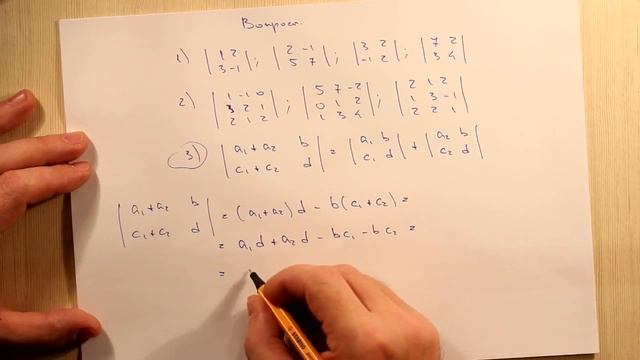 Вопросы.
1) | 1 2 ; 3 -1 | ; | 2 -1 ; 5 7 | ; | 3 2 ; -1 2 | ; | 7 2 ; 3 4 |
2) | 1 -1 0 ; 3 2 1 ; 2 1 2 | ; | 5 7 -2 ; 0 1 2 ; 1 3 4 | ; | 2 1 2 ; 1 3 -1 ; 2 2 1 |
3) | a₁+a₂ b ; c₁+c₂ d | = | a₁ b ; c₁ d | + | a₂ b ; c₂ d |
| a₁+a₂ b ; c₁+c₂ d | = (a₁+a₂)d - b(c₁+c₂) =
= a₁d + a₂d - bc₁ - bc₂ =
=